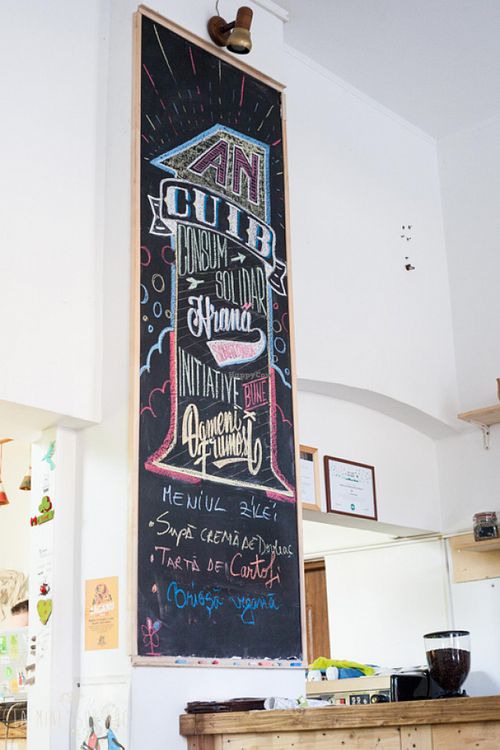 AN
CUIB
CONSUM
SOLIDAR
Hrană
INITIATIVE
BUNE
Oameni
Frumoși
MENIUL ZILEI
• SUPĂ CREMĂ DE Dovleac
• TARTĂ DE CARTOFI
Briosă vegană